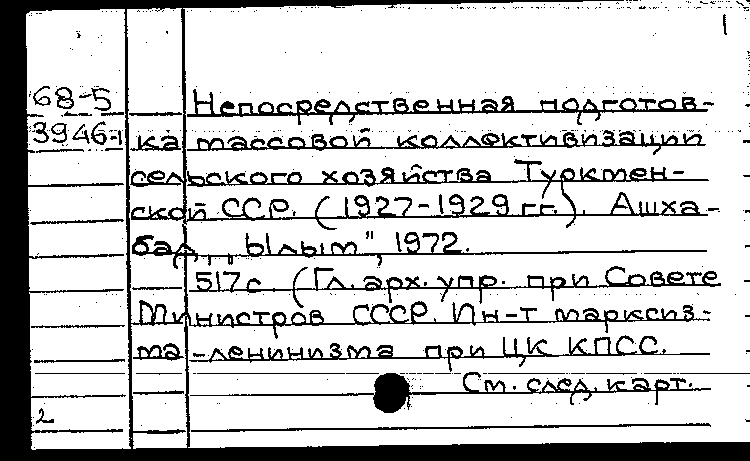 1
68-5 Непосредственная подготов-
3946-1 ка массовой коллективизации
сельского хозяйства Туркмен-
ской ССР. (1927-1929 гг.). Ашха-
бад, „Ылым", 1972.
517с. (Гл. арх. упр. при Совете
Министров СССР. Ин-т марксиз-
ма-ленинизма при ЦК КПСС.
См. след. карт.
2